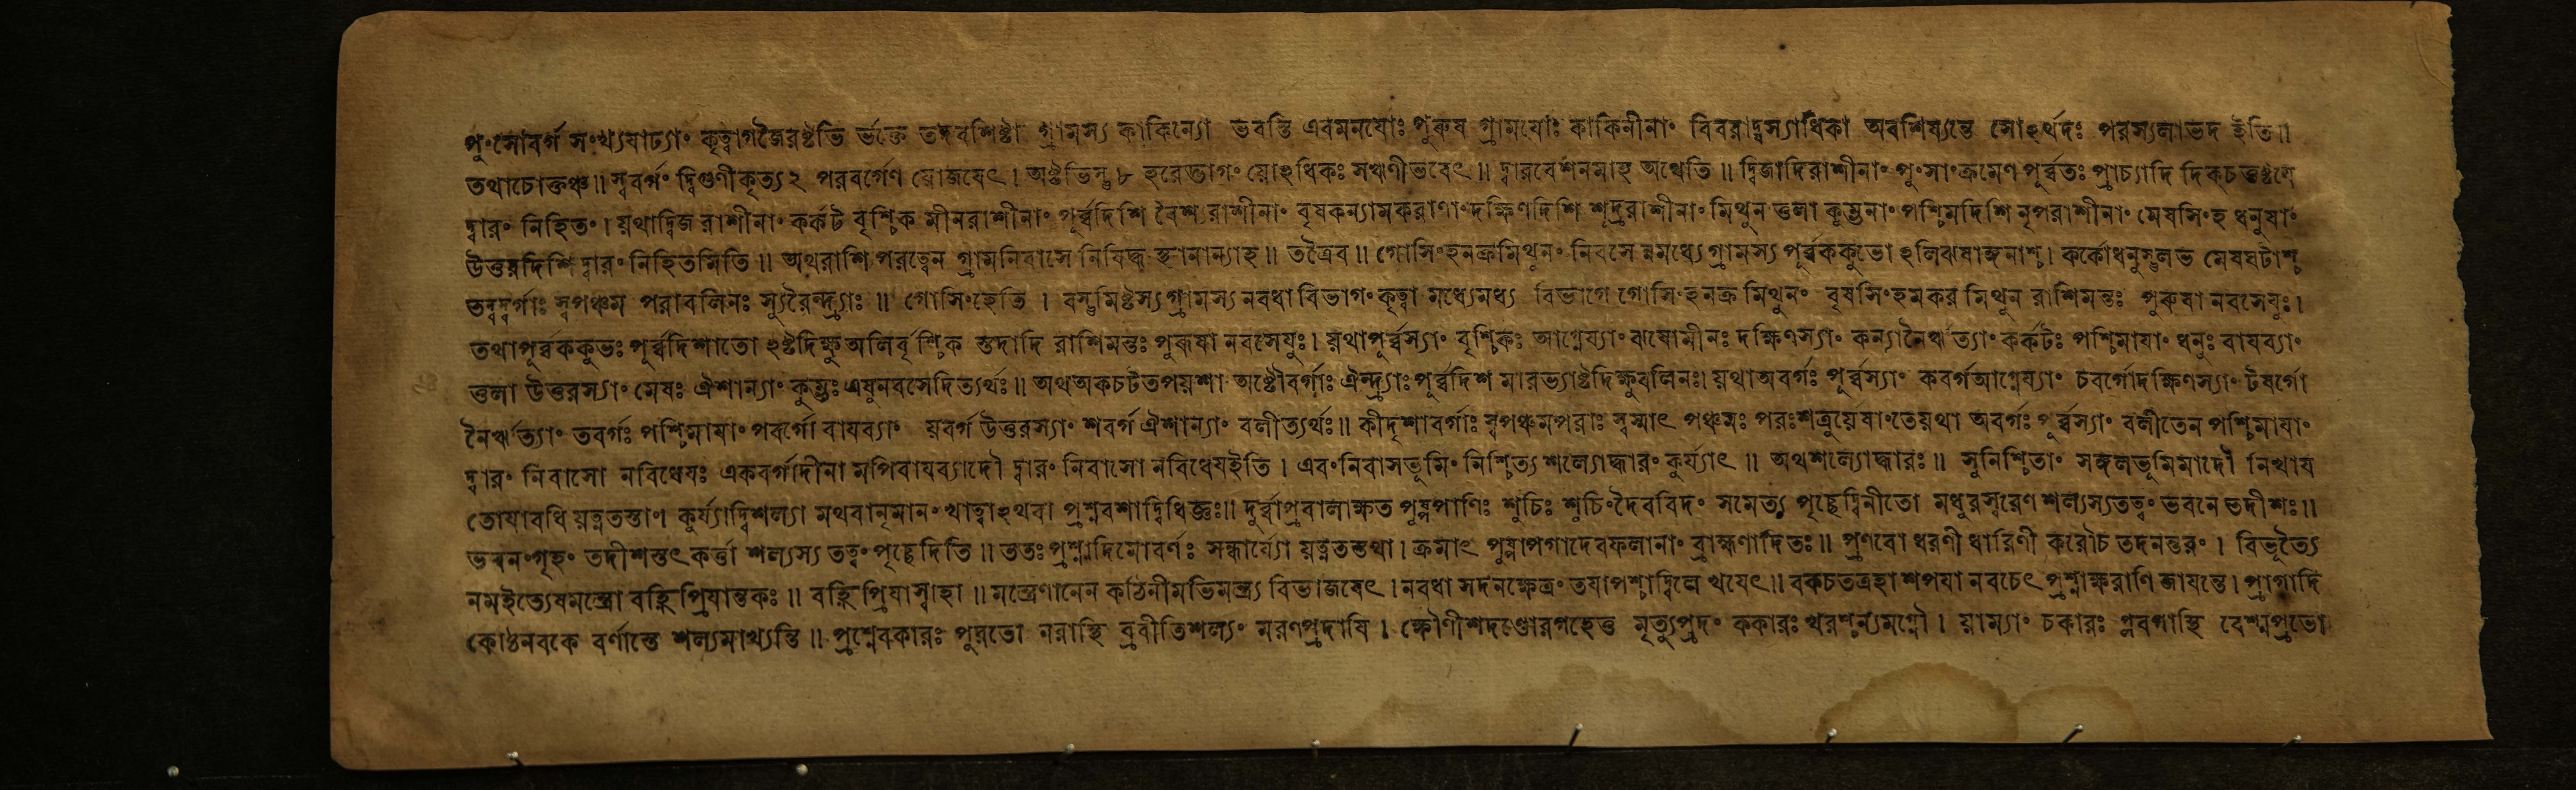 পুংসোবর্গ সংখ্যযাঢ্যাং কৃত্বাগজৈরষ্টভি র্ভক্তে তদবশিষ্টা গ্রামস্য কাকিন্যো ভবন্তি এবমনযোঃ পুরুষ গ্রামযোঃ কাকিনীনাং বিবরাদ্যস্যাধিকা অবশিষ্যন্তে সোঽর্থদঃ পরস্যলাভদ ইতি॥
তথাচোক্তঞ্চ॥ স্ববর্গং দ্বিগুণীকৃত্য ২ পরবর্গেণ যোজযেৎ। অষ্টভিস্তু ৮ হরেদ্ভাগং যোঽধিকঃ সঋণীভবেৎ॥ দ্বারবেশনমাহ অথেতি॥ দ্বিজাদিরাশীনাং পুংসাংক্রমেণ পূর্ব্বতঃ প্রাচ্যাদি দিকচতুষ্টযে
দ্বারং নিহিতং। যথাদ্বিজ রাশীনাং কর্কট বৃশ্চিক মীনরাশীনাং পূর্ব্বদিশি বৈশ্য রাশীনাং বৃষকন্যামকরাণাং দক্ষিণদিশি শূদ্ররাশীনাং মিথুন তুলা কুম্ভনাং পশ্চিমদিশি নৃপরাশীনাং মেষসিংহ ধনুষাং
উত্তরদিশি দ্বারং নিহিতমিতি॥ অথরাশি পরত্বেন গ্রামনিবাসে নিষিদ্ধ স্থানান্যাহ॥ তত্রৈব॥ গোসিংহনক্রমিথুনং নিবসে ন্নমধ্যে গ্রামস্য পূর্ব্বককুভো ঽলিঝষাঙ্গনাশ্চ। কর্কোধনুস্তুলভ মেষঘটাশ্চ
তদ্বদ্বর্গাঃ স্বপঞ্চম পরাবলিনঃ স্যুরৈন্দ্র্যাঃ॥ গোসিংহেতি। বস্তুমিষ্টস্যগ্রামস্য নবধা বিভাগং কৃত্বা মধ্যেমধ্য বিভাগে গোসিংহনক্র মিথুনং বৃষসিংহমকর মিথুন রাশিমন্তঃ পুরুষা নবসেযুঃ।
তথাপূর্ব্বককুভঃ পূর্ব্বদিশাতো ঽষ্টদিক্ষু অলিবৃশ্চিক স্তদাদি রাশিমন্তঃ পুরুষা নবসেযুঃ। যথাপূর্ব্বস্যাং বৃশ্চিকঃ আগ্নেয্যাং ঝষোমীনঃ দক্ষিণস্যাং কন্যানৈঋত্যাং কর্কটঃ পশ্চিমাযাং ধনুঃ বাযব্যাং
তুলা উত্তরস্যাং মেষঃ ঐশান্যাং কুম্ভঃ এষুনবসেদিত্যর্থঃ॥ অথঅকচটতপযশা অষ্টৌবর্গাঃ ঐন্দ্র্যাঃ পূর্ব্বদিশ মারভ্যাষ্টদিক্ষুবলিনঃ। যথাঅবর্গঃ পূর্ব্বস্যাং কবর্গআগ্নেয্যাং চবর্গোদক্ষিণস্যাং টবর্গো
নৈঋত্যাং তবর্গঃ পশ্চিমাযাং পবর্গো বাযব্যাং যবর্গ উত্তরস্যাং শবর্গ ঐশান্যাং বলীত্যর্থঃ॥ কীদৃশাবর্গাঃ স্বপঞ্চমপরাঃ স্বস্মাৎ পঞ্চমঃ পরঃশত্রুযেষাংতেযথা অবর্গঃ পূর্ব্বস্যাং বলীতেন পশ্চিমাযাং
দ্বারং নিবাসো নবিধেযঃ একবর্গাদীনা মপিবাযব্যাদৌ দ্বারং নিবাসো নবিধেযইতি। এবংনিবাসভূমিং নিশ্চিত্য শল্যোদ্ধারং কুর্য্যাৎ॥ অথশল্যোদ্ধারঃ॥ সুনিশ্চিতাং সঙ্গলভূমিমাদৌ নিখায
তোযাবধি যত্নতস্তাণ কুর্য্যাদ্বিশল্যা মথবানৃমানংখাত্বাঽথবা প্রশ্নবশাদ্বিধিজ্ঞঃ॥ দূর্ব্বাপ্রবালাক্ষত পুষ্পপাণিঃ শুচিঃ শুচিংদৈববিদং সমেত্য পৃচ্ছেদ্বিনীতো মধুরস্বরেণ শল্যস্যতত্বং ভবনে তদীশঃ॥
ভবনংগৃহং তদীশস্তৎ কর্ত্তা শল্যস্য তত্বং পৃচ্ছেদিতি॥ ততঃ প্রশ্নাদিমোবর্ণঃ সন্ধার্য্যো যত্নতস্তথা। ক্রমাৎ পুষ্পাপগাদেবফলানাং ব্রাহ্মণাদিতঃ॥ প্রণবো ধরণী ধারিণী করৌচ তদনন্তরং। বিভূত্যৈ
নমইত্যেষমন্ত্রো বহ্নিপ্রিযান্তকঃ॥ বহ্নিপ্রিযাস্বাহা॥ মন্ত্রেণানেন কঠিনীমভিমন্ত্র্য বিভাজযেৎ। নবধা সদনক্ষেত্রং তযাপশ্চাদ্বিলে খযেৎ॥ বকচতত্রহা শপযা নবচেৎ প্রশ্নাক্ষরাণি জাযন্তে। প্রাগাদি
কোষ্ঠনবকে বর্ণাস্তে শল্যমাখ্যান্তি॥ প্রশ্নেবকারঃ পুরতো নরাস্থি ব্রবীতিশল্যং মরণপ্রদাযি। ক্ষৌণীশদণ্ডোরগহেতু মৃত্যুপ্রদং ককারঃ খরশূন্যমগ্নৌ। যাম্যাং চকারঃ প্লবগাস্থি বেশ্মপ্রভো